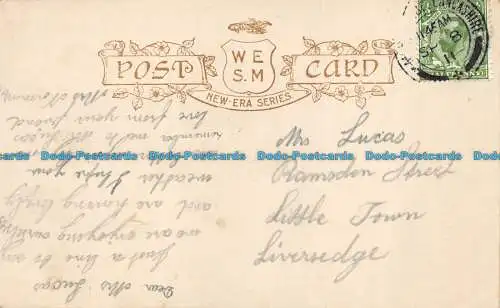 POST CARD
W E
S. M
NEW-ERA SERIES
LANCASHIRE
HALFPENNY
Mrs Lucas
Ramsden Street
Little Town
Liversedge
Dear Mrs Lucas
Just a line to say
we are enjoying ourselves
and are having lovely
weather I hope you
remember me to all
love from your friend
Mrs
Dodo-Postcards Dodo-Postcards Dodo-Postcards Dodo-Postcards Dodo-Postcards Dodo-Postcards